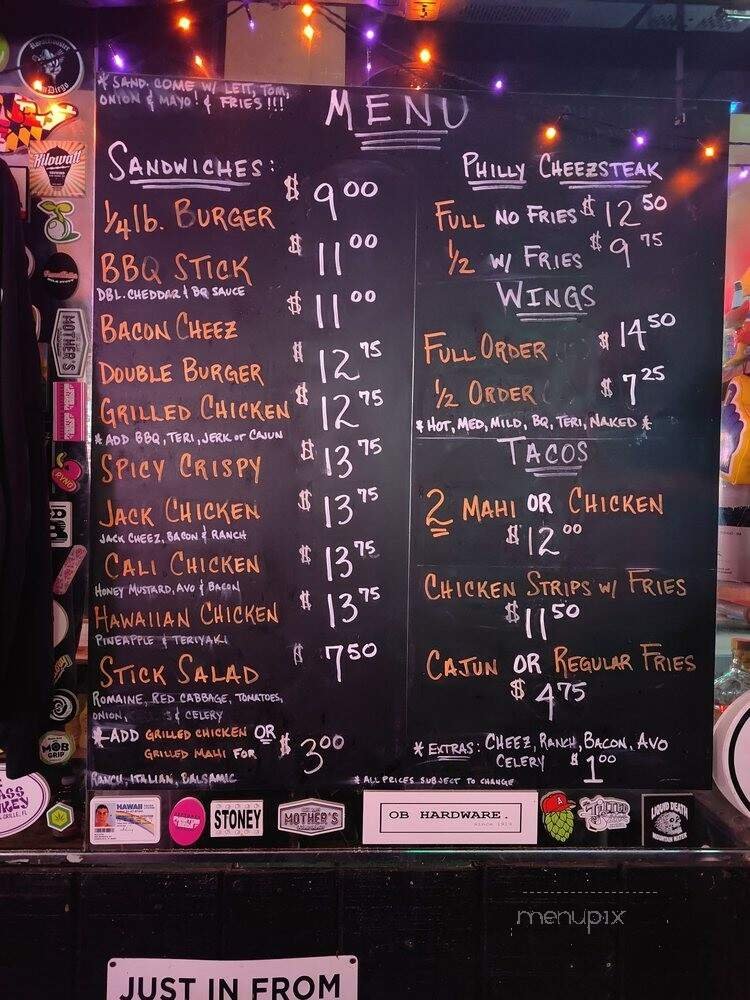 * SAND. COME W/ LETT, TOM,
ONION & MAYO! & FRIES!!!
MENU
SANDWICHES:
1/4 lb. BURGER $9.00
BBQ STICK $11.00
DBL. CHEDDAR & BQ SAUCE
BACON CHEEZ $11.00
DOUBLE BURGER $12.75
GRILLED CHICKEN $12.75
* ADD BBQ, TERI, JERK or CAJUN
SPICY CRISPY $13.75
JACK CHICKEN $13.75
JACK CHEEZ, BACON & RANCH
CALI CHICKEN $13.75
HONEY MUSTARD, AVO & BACON
HAWAIIAN CHICKEN $13.75
PINEAPPLE & TERIYAKI
STICK SALAD $7.50
ROMAINE, RED CABBAGE, TOMATOES,
ONION, & CELERY
* ADD GRILLED CHICKEN OR
GRILLED MAHI FOR $3.00
RANCH, ITALIAN, BALSAMIC
PHILLY CHEEZSTEAK
FULL NO FRIES $12.50
1/2 W/ FRIES $9.75
WINGS
FULL ORDER $14.50
1/2 ORDER $7.25
* HOT, MED, MILD, BQ, TERI, NAKED *
TACOS
2 MAHI OR CHICKEN
$12.00
CHICKEN STRIPS W/ FRIES
$11.50
CAJUN OR REGULAR FRIES
$4.75
* EXTRAS: CHEEZ, RANCH, BACON, AVO
CELERY $1.00
* ALL PRICES SUBJECT TO CHANGE
Kilowatt
MOTHER'S
MOB
GRIP
HAWAII
STONEY
MOTHER'S
OB HARDWARE.
since 1914
LIQUID DEATH
MOUNTAIN WATER
menupix
JUST IN FROM